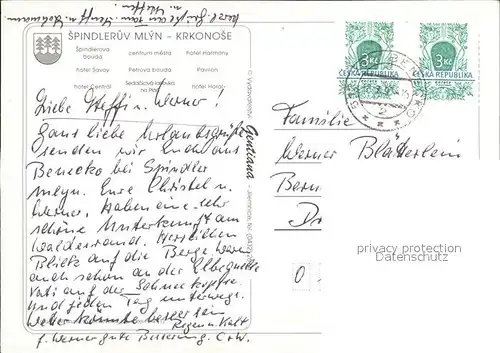 Herzl. Grüße an Fam.
ŠPINDLERŮV MLÝN - KRKONOŠE
Špindlerova bouda
centrum města
hotel Harmony
hotel Savoy
Petrova bouda
Pavilon
hotel Centrál
Sedačková lanovka na Pláň
hotel Horal
Liebe Steffi u. Werner!
Ganz liebe Urlaubsgrüße
senden wir Euch aus
Benecko bei Spindler
mlyn. Eure Christel u.
Werner, haben eine sehr
schöne Unterkunft am
Waldesrand. Herrlichen
Blick auf die Berge. Waren
auch schon an der Elbequelle
Vati auf der Schneekoppe.
Und jeden Tag unterwegs.
Wetter könnte besser sein
Regen u. Kalt
f. Werner gute Besserung. C+W.
Gentiana
3Kč
ČESKÁ REPUBLIKA
3Kč
ČESKÁ REPUBLIKA
BENECKO
2
Familie
Werner Blätterlein
property protection
Datenschutz